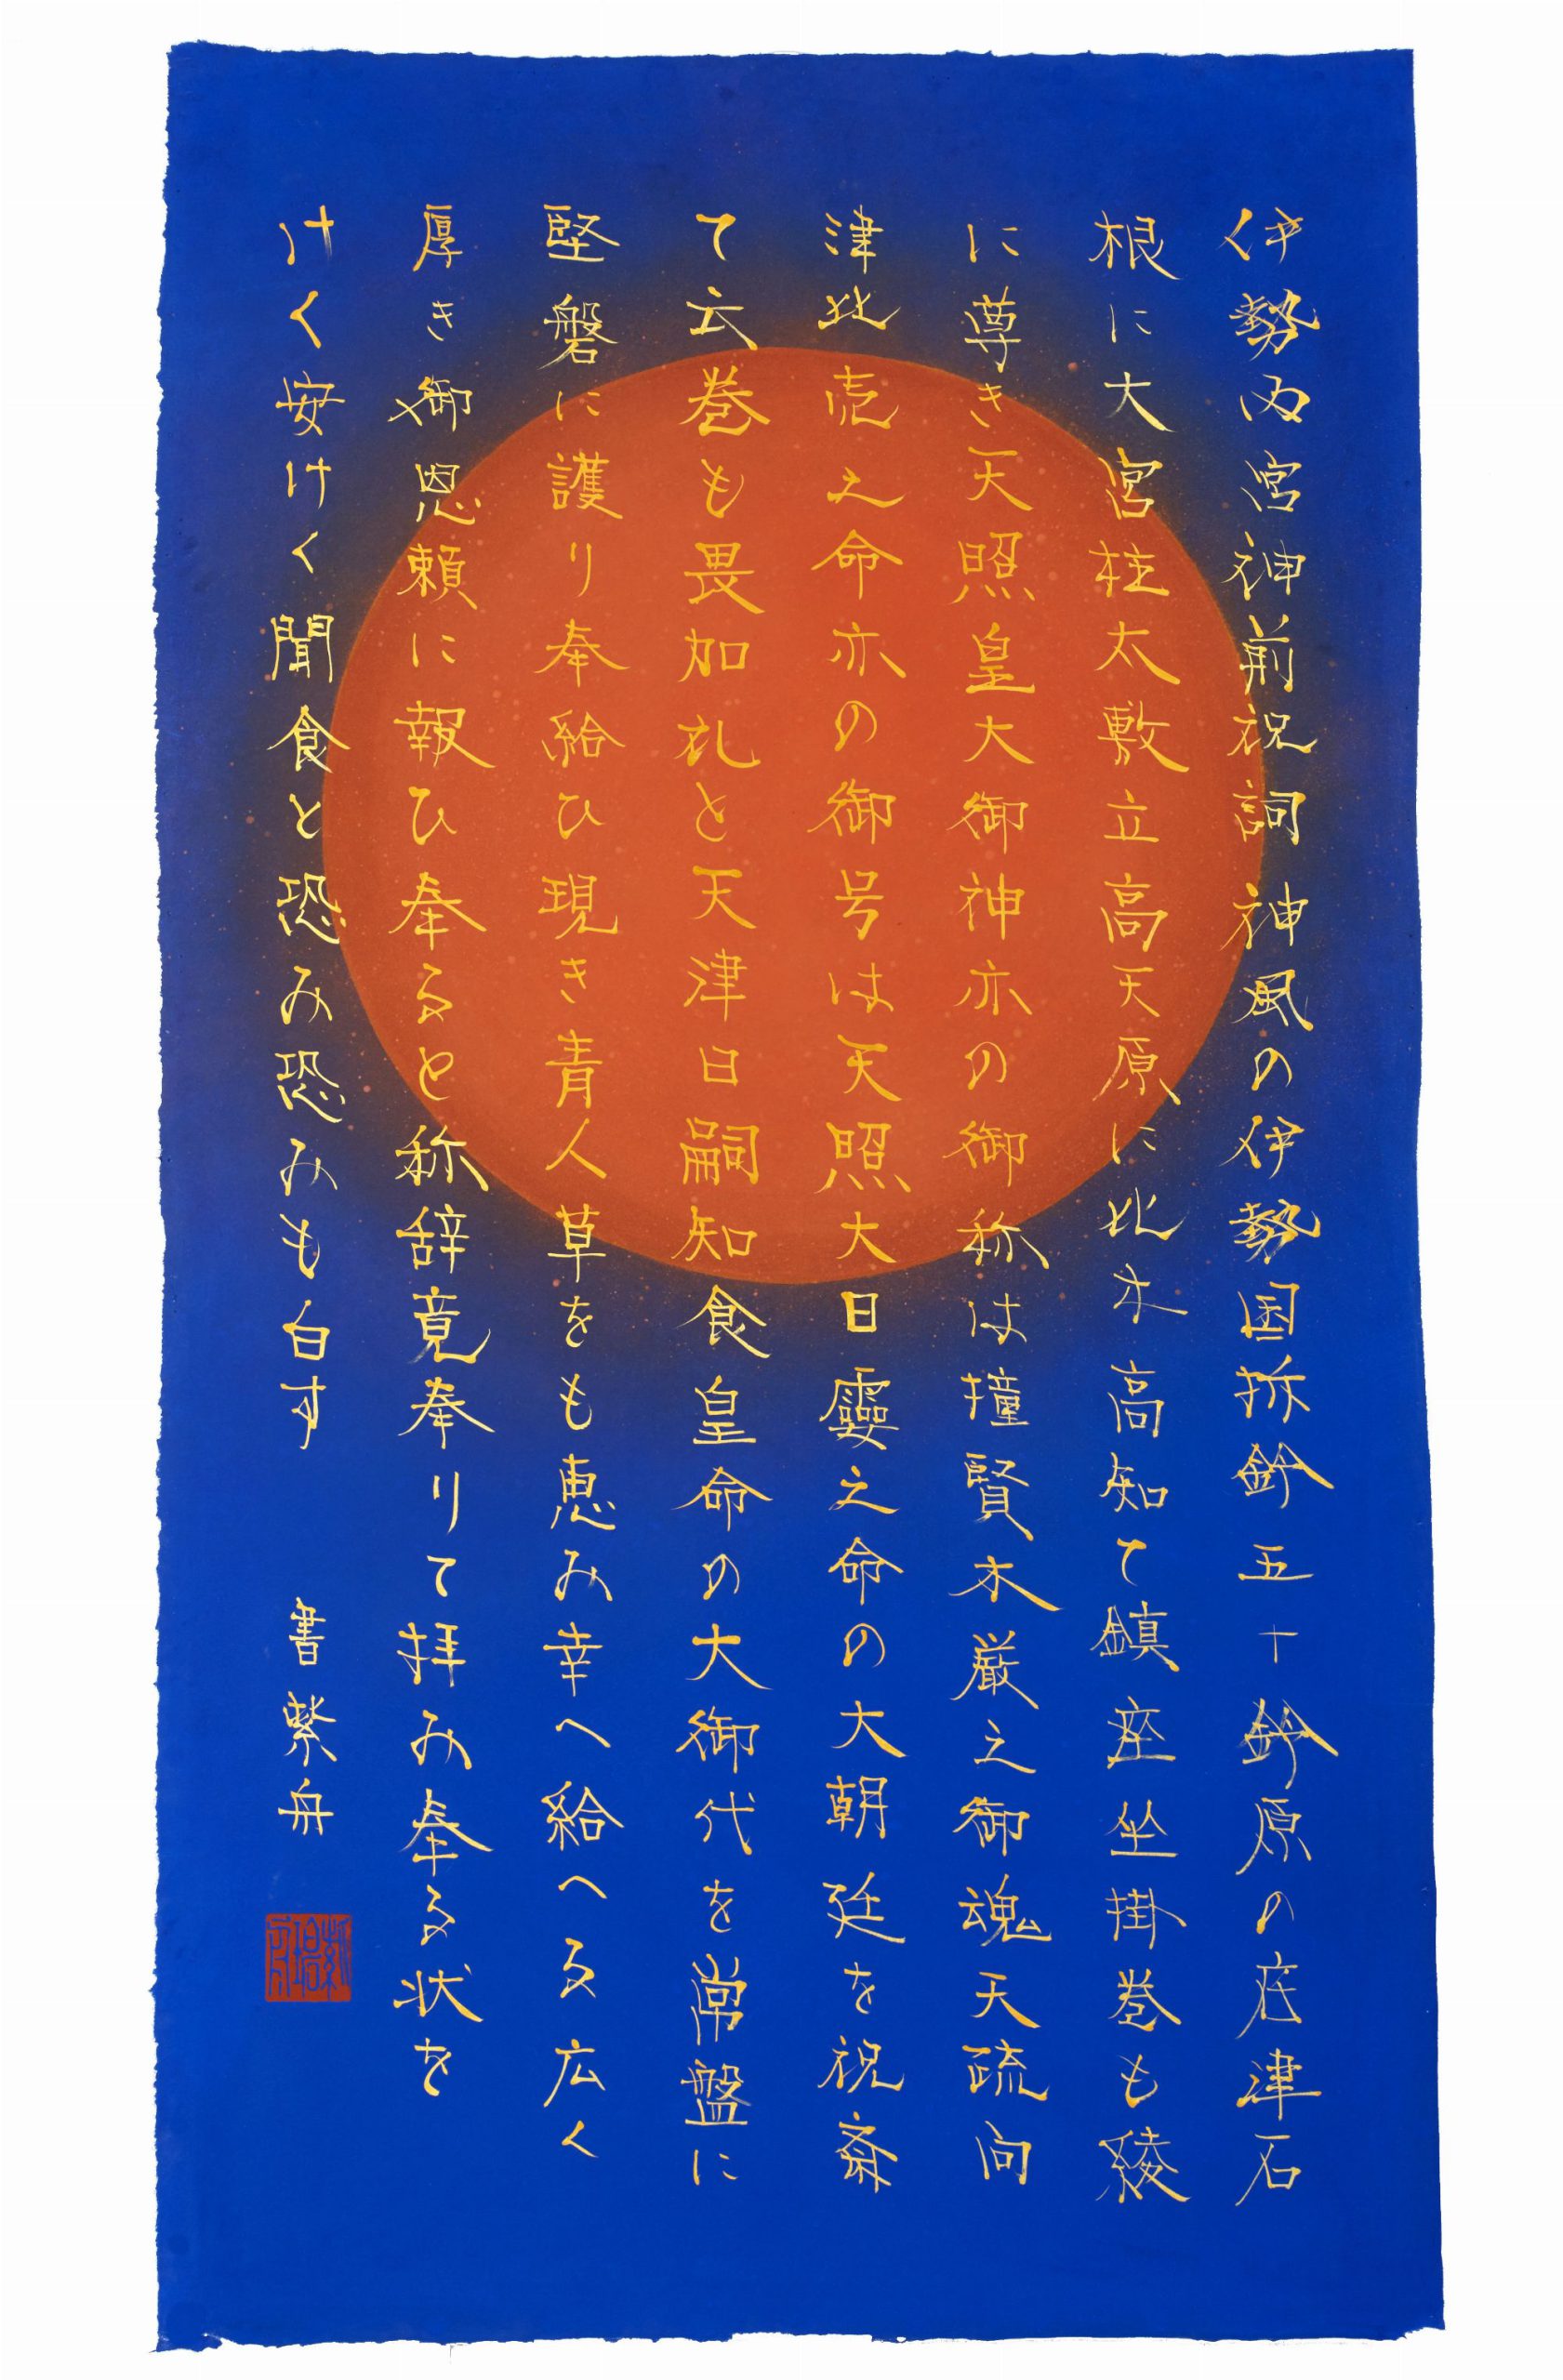 伊勢内宮神前祝詞神風の伊勢国拆鈴五十鈴原の底津石
根に大宮柱太敷立高天原に比木高知て鎮座坐掛巻も綾
に尊き天照皇大御神亦の御称は撞賢木厳之御魂天疏向
津比売之命亦の御号は天照大日孁之命の大朝廷を祝斎
て云巻も畏加礼と天津日嗣知食皇命の大御代を常盤に
堅磐に護り奉給ひ現き青人草をも恵み幸へ給へる広く
厚き御恩頼に報ひ奉ると称辞竟奉りて拝み奉る状を
けく安けく聞食と恐み恐みも白す 書紫舟